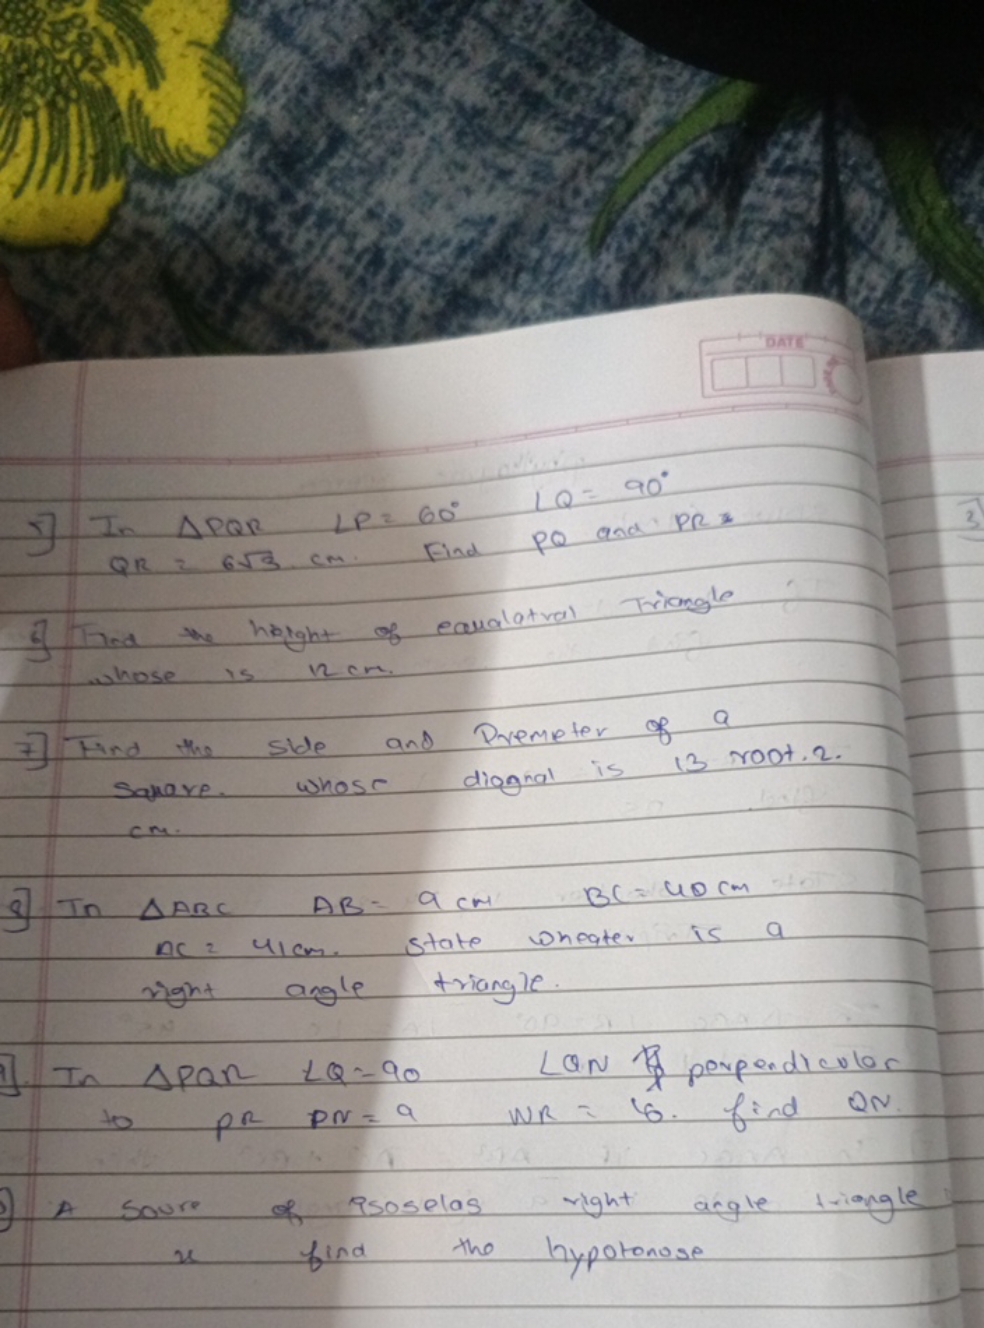 DATE
5] In △PQR ∠P = 60° ∠Q = 90°
QR = 6√3 cm. Find PQ and PR
6] Find the height of eaualatral Triangle
whose is 12 cm.
7] Find the side and Premeter of a
Square. whose diagnal is 13 root. 2.
cm.
8] In △ABC AB = 9 cm BC = 40 cm
AC = 41 cm. state wheater is a
right angle triangle.
9]. In △PQR ∠Q = 90 ∠QN perpendicolar
to PR PN = 9 NR = 16. find QN.
A Soure of isoselas right angle triangle
x find the hypotonose
3]